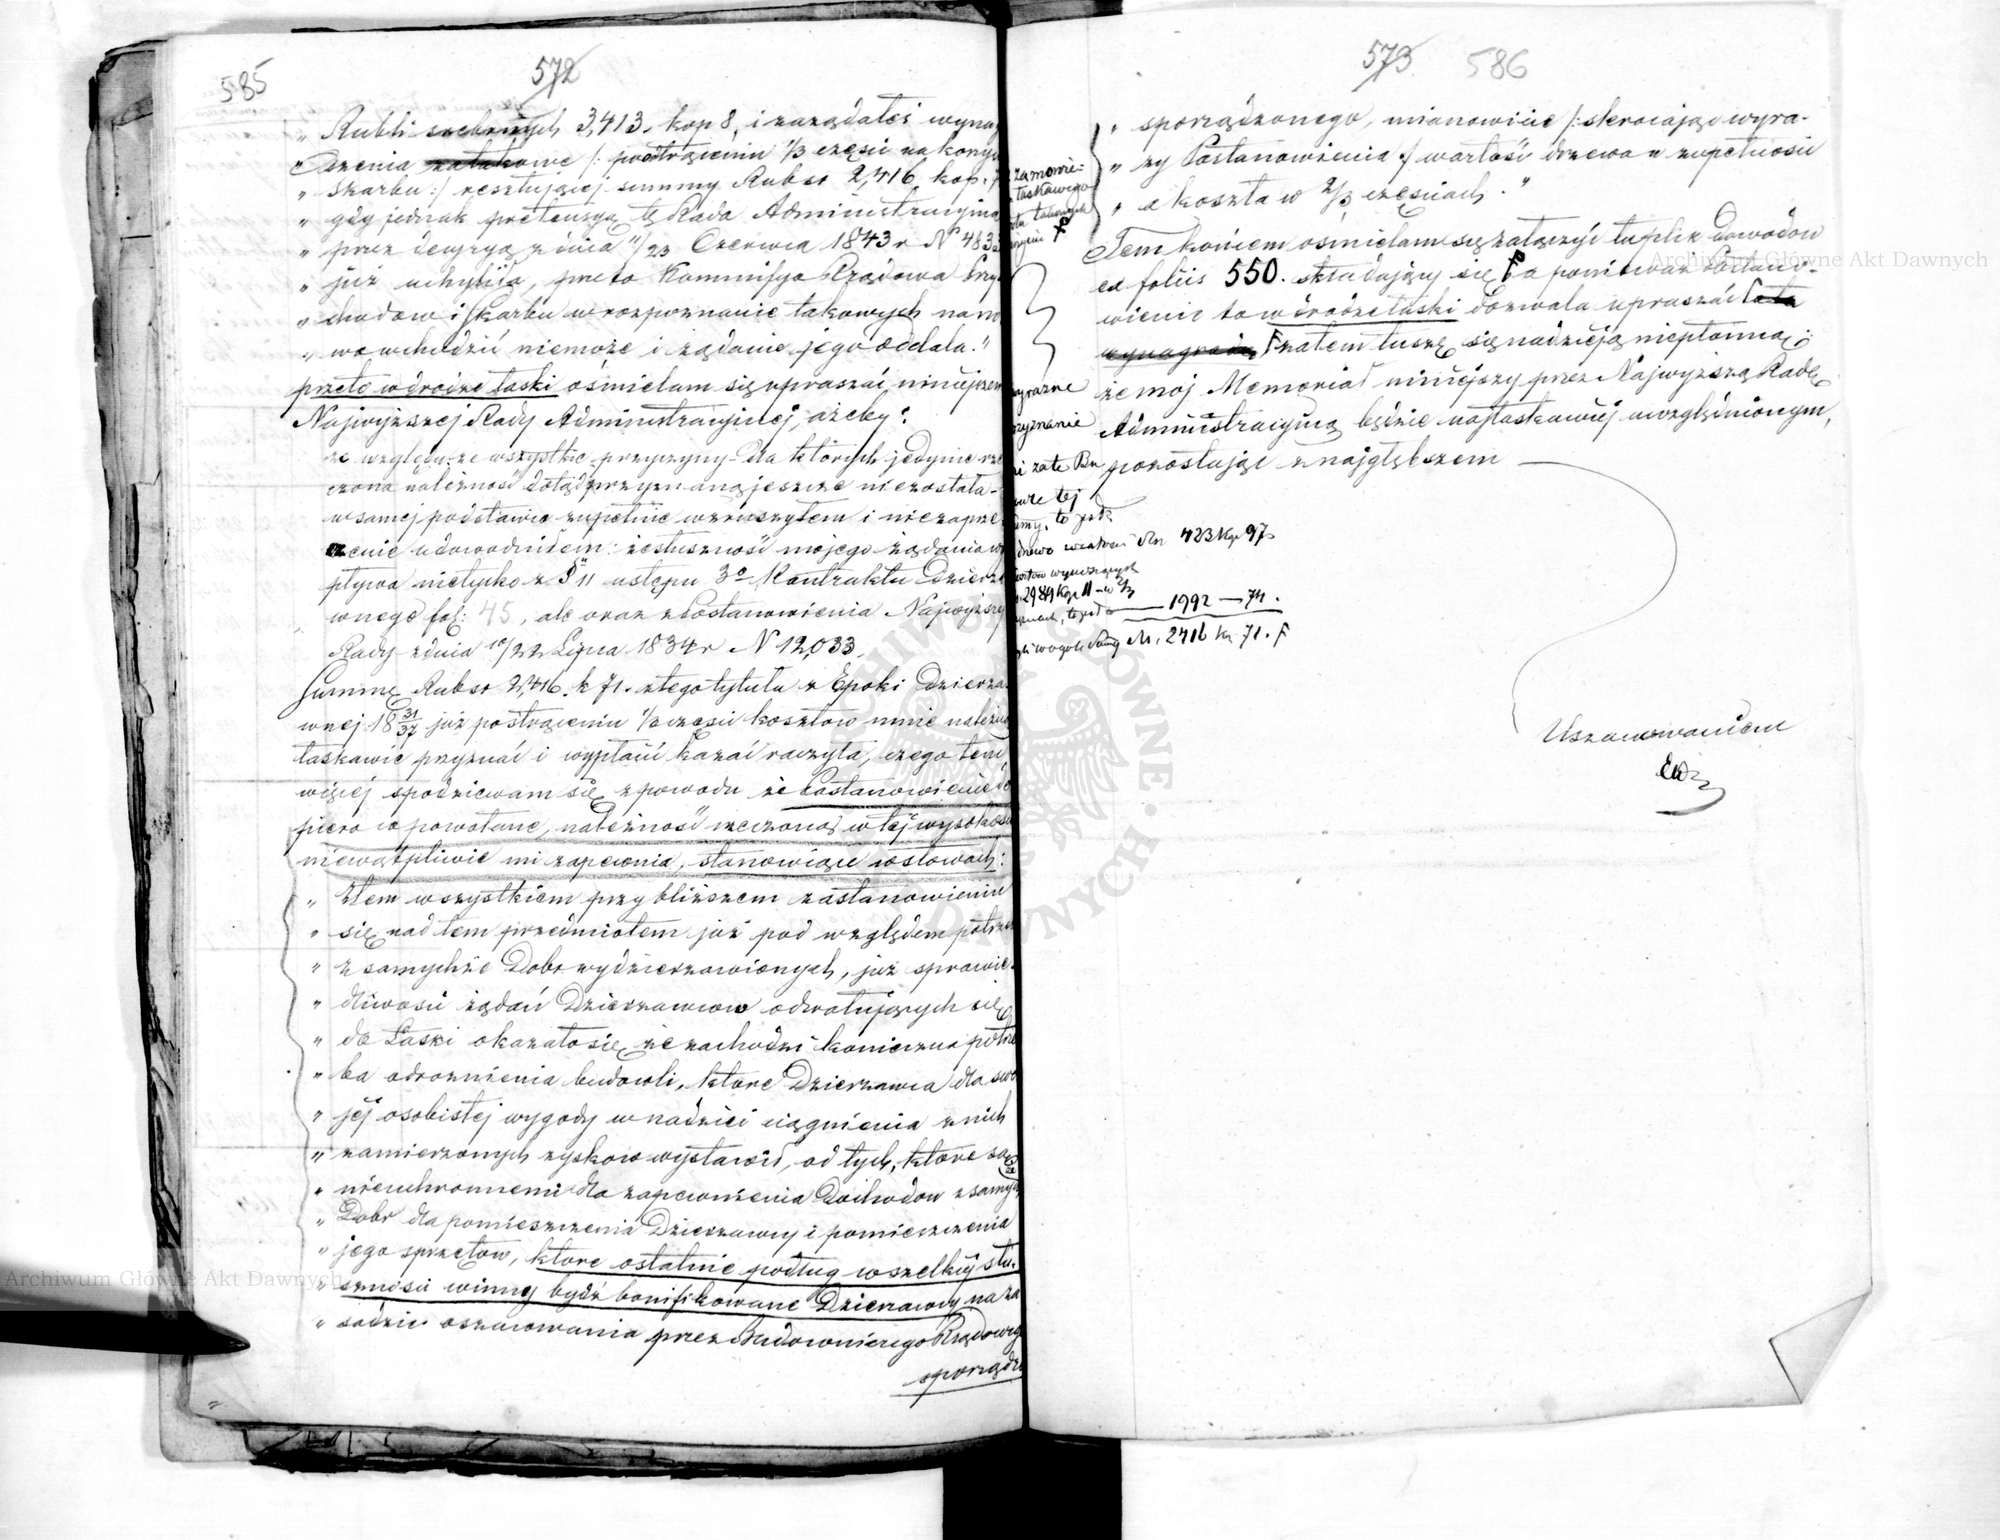 585 572
„ Rubli srebrnych 3,413. kop 8, i zażądałeś wyna
dzenia za takowe /: po odtrąceniu 1/3 części na korzyś
„ Skarbu :/ resztującej summy Rubsr 2,416 kop. 7
„ gdy jednak pretensyą tę Rada Administracyina
„ przez decyzyą z dnia 11/23 Czerwca 1843 r N 483
„ już uchyliła, przeto Kommissya Rządowa Przy
„ chodow i Skarbu w rozpoznanie takowych nano
„ wo wchodzić niemoże i żądanie jego oddala."
przeto w drodze łaski ośmielam się upraszać niniejszem
Najwyższej Rady Administracyinej, ażeby:
ze względu, że wszystkie przyczyny dla których jedynie rze
czona należność dotąd przyznaną jeszcze niezostała
w samej podstawie zupełnie wzruszyłem i niezaprze
czenie udowodniłem: że słuszność mojego żądania wy
pływa nietylko z § 11 ustępu 3o Kontraktu Dzierża
wnego fol: 45, ale oraz z Postanowienia Najwyższej
Rady z dnia 10/22 Lipca 1834 r N 12,033.
Summę Rubsr 2,416. k 71. z tego tytułu z Epoki Dzierża
wnej 18 31/37 już po strąceniu 1/3 części kosztow mnie należną
łaskawie przyznać i wypłacić kazać raczyła, czego tem
więcej spodziewam się z powodu że Postanowienie do
piero co powołane, należność rzeczoną w tej wysokości
niewątpliwie mi zapewnia, stanowiąc w słowach:
„ Ztem wszystkiem przy bliższem zastanowieniu
„ się nad tem przedmiotem już pod względem potrzeb
„ z samychże Dobr wydzierżawionych, już sprawie-
„ dliwości żądań Dzierżawcow odwołujących się
„ do Łaski okazało się że zachodzi konieczna potrze
„ ba odroznienia budowli, ktore Dzierżawca dla swo
„ jej osobistej wygody w nadziei ciągnienia z nich
„ zamierzonych zyskow wystawił, od tych, ktore są
„ nieuchronnemi dla zapewnienia Dochodow z samych że
„ Dobr dla pomieszczenia Dzierżawcy i pomieszczenia
„ jego sprzętow, ktore ostatnie podług wszelkiej słu-
„ szności winny bydź bonifikowane Dzierżawcy na za
„ sadzie oszacowania przez Budowniczego Rządowego
sporządzo
573 586
„ sporządzonego, mianowicie /: skracając wyra-
„ zy Postanowienia :/ wartość drzewa w zupełności
„ a koszta w 2/3 częściach."
Tem końcem ośmielam się załączyć duplik Dowodow
ex foliis 550. składający się F a ponieważ Postano-
wienie to w drodze łaski dozwala upraszać
wynagrodz F zatem tuszę się nadzieją niepłonną:
że moj Memoriał niniejszy przez Najwyższą Radę
Administracyiną będzie najłaskawiej uwzględnionym,
pozostając z najgłębszem
Uszanowaniem
yrazne
yznanie
i zate Rn
wże tej
my, to jest
drzewo wartosci Rn 423 Kp 97
kosztow wynoszących
2989 Kp 11 - w 2/3
1992 — 74.
wogole Summy Rs. 2416 k. 71. F
Archiwum Główne Akt Dawnych
Archiwum Główne Akt Dawnych